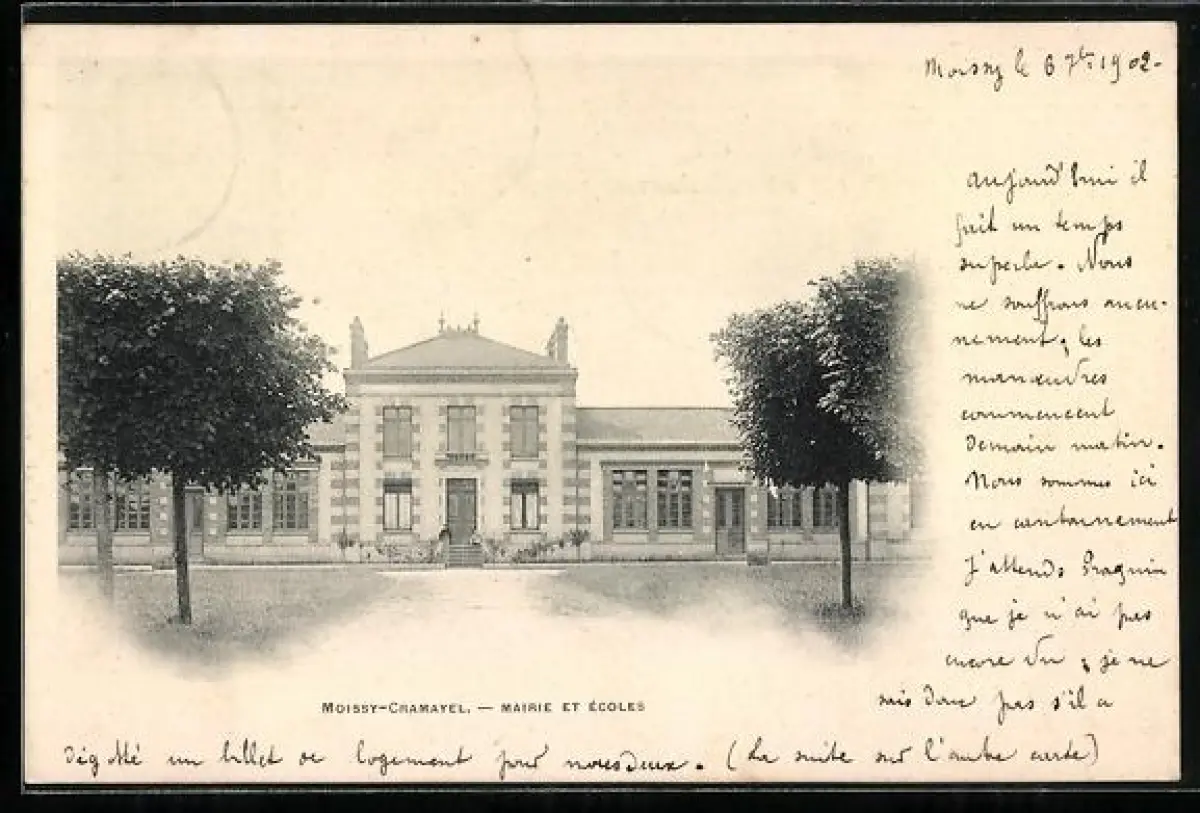 Moissy le 6 7bre 1902-
aujourd'hui il
fait un temps
superbe. Nous
ne souffrons aucu-
nement, les
manœuvres
commencent
demain matin.
Nous sommes ici
en cantonnement
J'attends
que je n'ai pas
encore vu, je ne
sais donc pas s'il a
MOISSY-CRAMAYEL. — MAIRIE ET ÉCOLES
dégotté un billet de logement pour nous deux. (La suite sur l'autre carte)